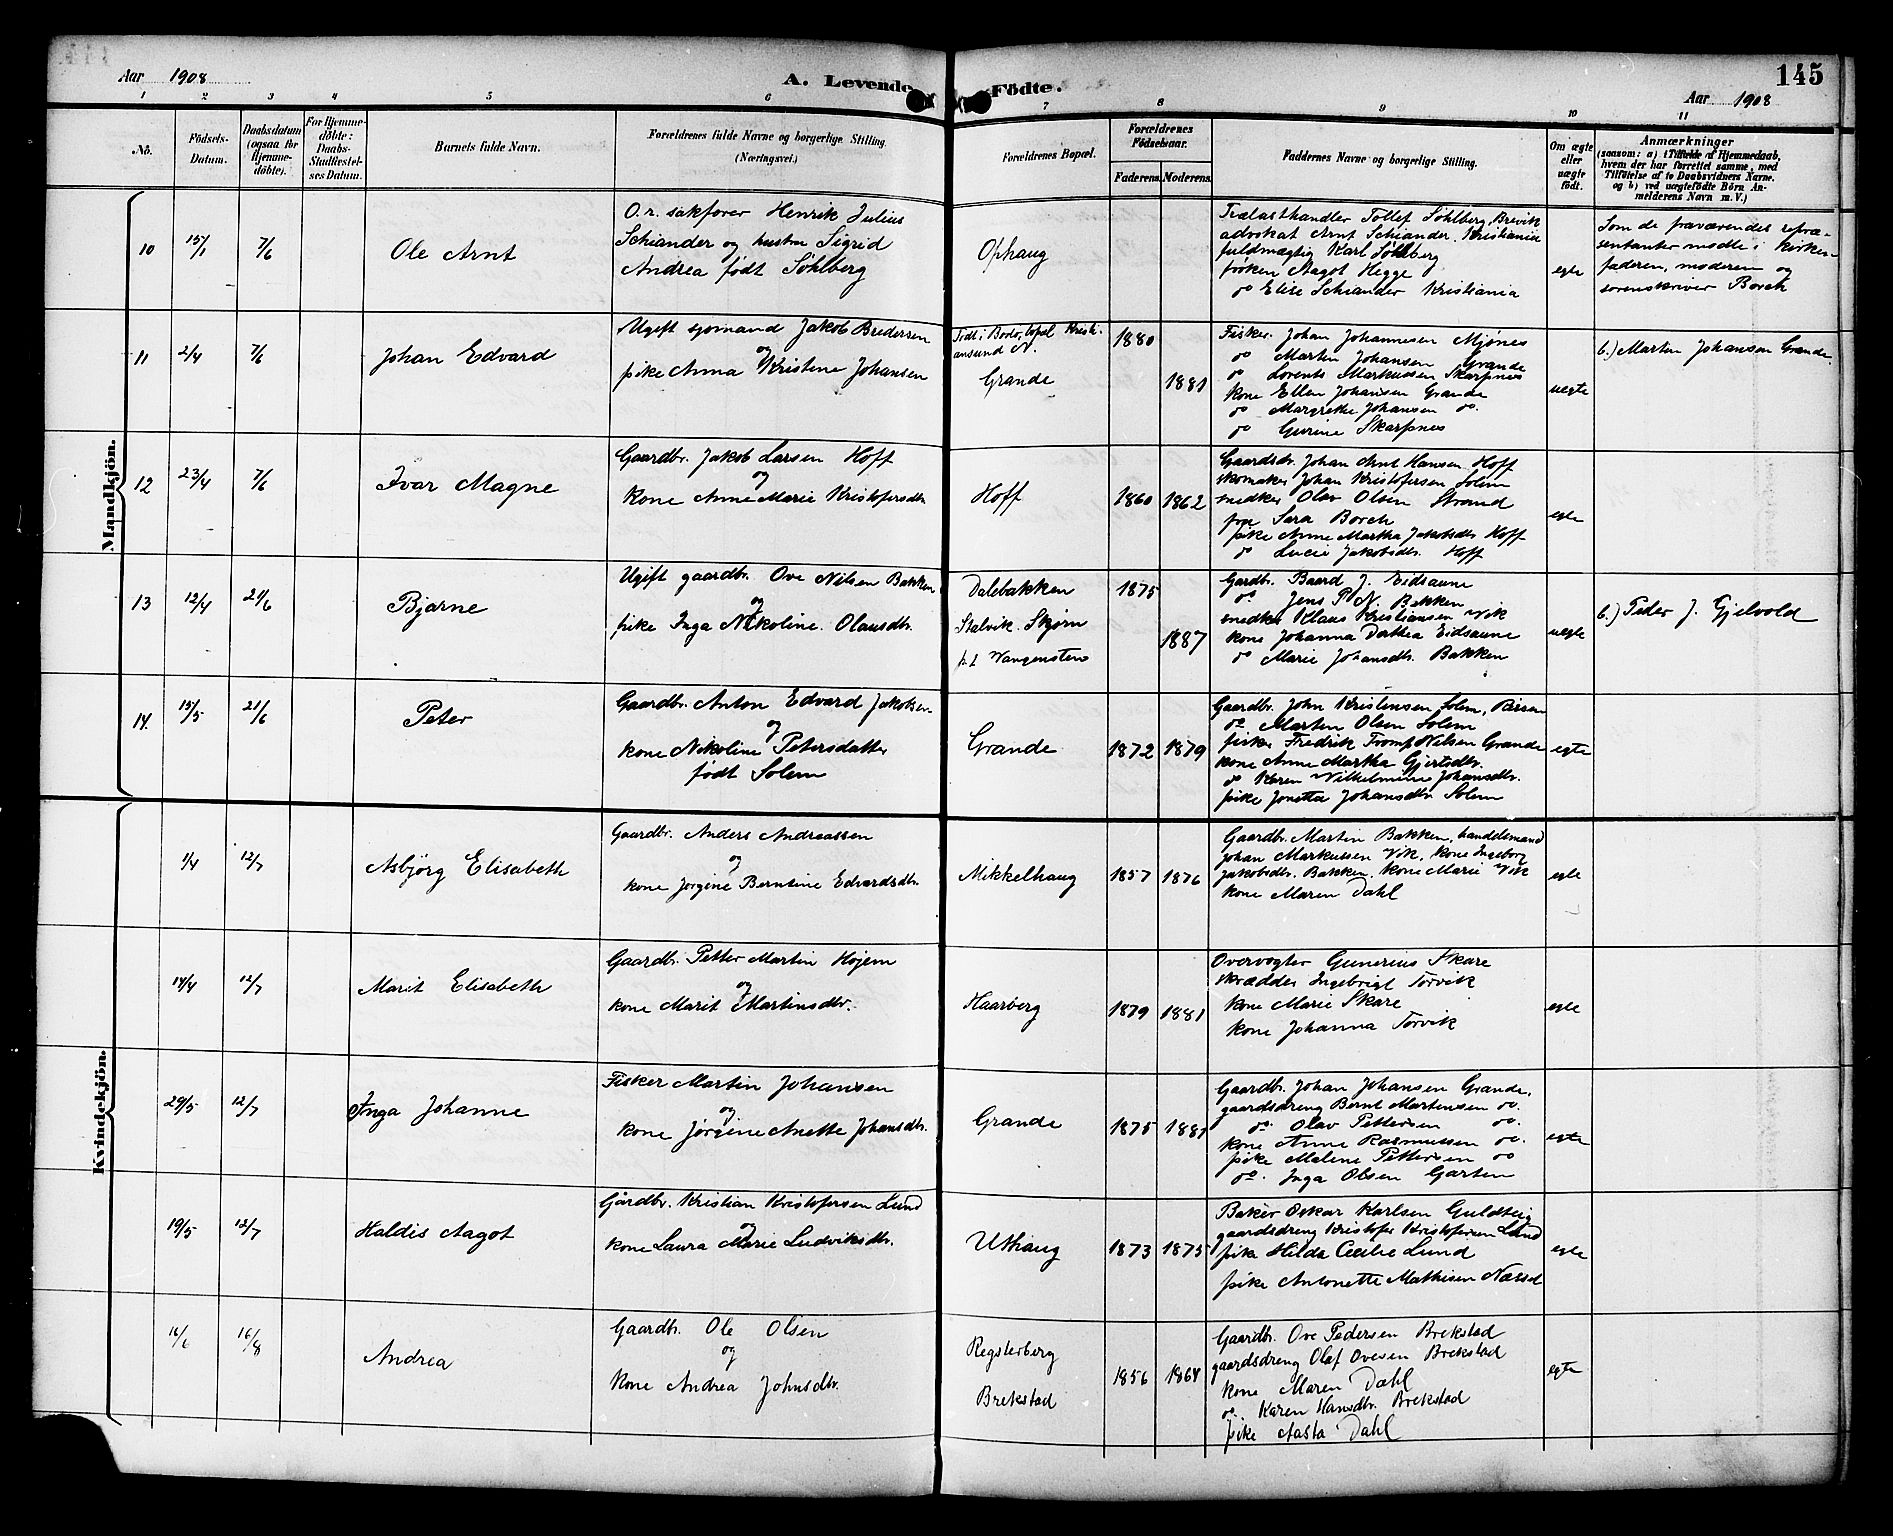 Aar 1908
A. Levende Fødte.
145
Aar 1908
1 2 3 4 5 6 7 8 9 10 11
No.
Fødsels-Datum.
Daabsdatum (ogsaa for Hjemme-döbte).
For Hjemme-döbte: Daabs-Stadfæstel-ses Datum.
Barnets fulde Navn.
Forældrenes fulde Navne og borgerlige Stilling. (Næringsvei.)
Forældrenes Bopæl.
Forældrenes Födselsaar.
Faderens. Moderens.
Faddernes Navne og borgerlige Stilling.
Om ægte eller uægte født.
Anmærkninger
(saasom: a) i Tilfælde af Hjemmedaab, hvem der har forrettet samme, med Tilføielse af to Daabsvidners Navne. og b) ved uægtefödte Börn An-melderens Navn m. V.)
Mandkjön.
10 15/1 7/6 Ole Arnt
O.r. sakfører Henrik Julius
Schiander og hustru Sigrid
Andrea født Søhlberg
Ophaug
Trælasthandler Tollef Søhlberg, Brevik
advokat Arnt Schiander, Kristiania
fuldmægtig Karl Søhlberg
frøken Aagot Hegge
do Elise Schiander Kristiania
egte
Som de fraværendes repræ-
sentanter mødte i kirken
faderen, moderen og
sorenskriver Borch
11 2/4 7/6 Johan Edvard
Ugift sjømand Jakob Bredersen
og
pike Anna Kristine Johansen
Født i Bodø, bopæl Kristi-
ansund N.
Grande
1880
1881
Fisker Johan Johannesen Mjønes
do Martin Johansen Grande
do Lorents Markussen Skarpnes
kone Ellen Johansen Grande
do Margrethe Johansen do.
do Gurine Skarpnes
uegte
b.) Martin Johansen Grande
12 23/4 7/6 Ivar Magne
Gaardbr. Jakob Larsen Hoff
og
kone Anne Marie Kristofersdtr
Hoff
1860 1862
Gaardbr. Johan Arnt Hansen Hoff
skomaker Johan Kristofersen Solem
snedker Olav Olsen Strand
frue Sara Borch
pike Anne Martha Jakobsdtr Hoff
do Lucie Jakobsdtr. Hoff
egte
13 12/4 21/6 Bjarne
Ugift gaardbr. Ove Nilsen Bakken
og
pike Inga Nikoline Olausdtr.
Dalebakken
Stalvik. Skjørn
p.t. Wangensten
1875
1887
Gardbr. Baard J. Eidsaune
do. Jens P. N. Bakken
snedker Klaus Kristiansen Vik
kone Johanna Dorthea Eidsaune
do Marie Johansdtr. Bakken
uegte
b.) Peder J. Gjelvold
14. 15/5 21/6 Peter
Gaardbr. Anton Edvard Jakobsen
og
kone Nikoline Petersdatter
født Solem
Grande
1872 1879
Gaardbr. John Kristensen Solem,
do Martin Olsen Solem
fisker Fredrik Tromp Nilsen Grande
kone Anne Martha Gjertsdtr.
do Karen Wilhelmine Johansdtr.
pike Jonetta Johansdtr Solem
egte
Kvindekjön.
1/4 12/7 Asbjörg Elisabeth
Gaardbr. Anders Andreassen
og
kone Jørgine Berntine Edvardsdtr.
Mikkelhaug
1857 1876
Gaardbr. Martin Bakken, handelsmand
Johan Markussen Vik, kone Ingeborg
Jakobsdtr. Bakken, kone Marie Vik
kone Maren Dahl
egte
14/4 12/7 Marit Elisabeth
Gaardbr. Petter Martin Højem
og
kone Marit Martinsdtr.
Haarberg
1879 1881
Opervogter Gunerius Skare
skrædder Ingebrigt Torvik
kone Marie Skare
kone Johanna Torvik
egte
29/5 12/7 Inga Johanne
Fisker Martin Johansen
og
kone Jørgine Anette Johansdtr.
Grande
1875 1881
Gaardbr. Johan Johansen Grande,
gaardsdreng Bernt Martensen do.
do. Olav Pettersen do.
kone Anne Rasmussen do.
pike Malene Pettersen do
do. Inga Olsen Garten
egte
19/5 12/7 Haldis Aagot
Gårdbr. Kristian Kristofersen Lund
og
kone Laura Marie Ludviksdtr.
Uthaug
1873 1875
Baker Oskar Karlsen Guldteig
gaardsdreng Kristofer Kristofersen Lund
pike Hilda Cecilie Lund
pike Antonette Mathisen
egte
16/6 16/8 Andrea
Gaardbr. Ole Olsen
og
kone Andrea Johnsdtr.
Brekstad
1856 1864
Gaardbr. Ove Pedersen Brekstad
gaardsdreng Olaf Ovesen Brekstad
kone Maren Dahl
do. Karen Hansdtr. Brekstad
pike Aasta Dahl
egte